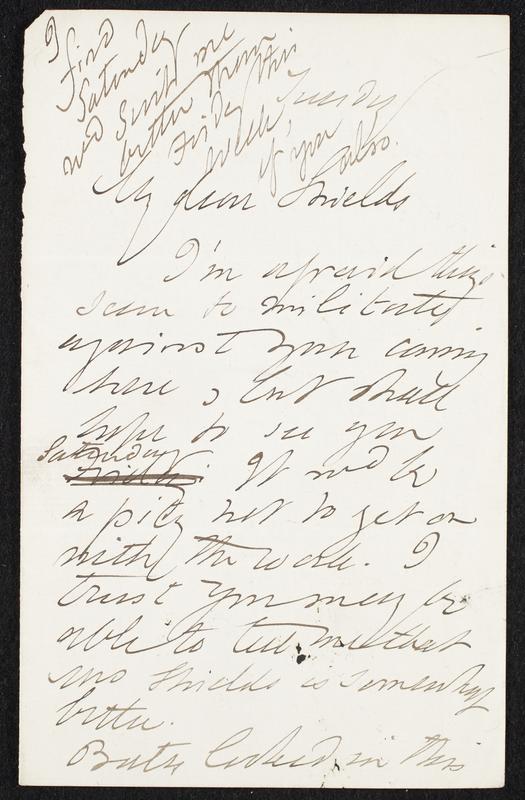 I find
Saturday
wd suit me
better than
Friday this
week,
if you also.
Tuesday
My dear Shields
I'm afraid things
seem to militate
against your coming
here, but shall
hope to see you
Saturday
Friday. It wd be
a pity not to get on
with the work. I
trust you may be
able to tell me that
Mrs Shields is somewhat
better.
Bates looked in this